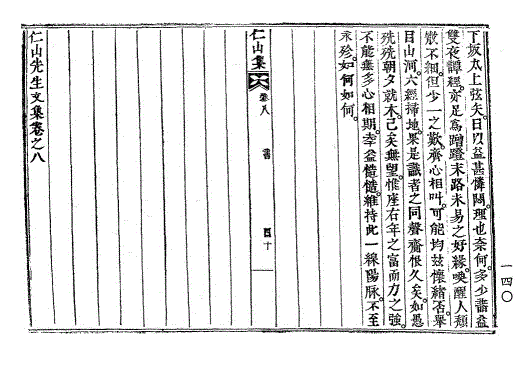 下坂丸上弦矣日以益甚憐閔理也奈何多少書益
雙夜譚經亦足爲蹭蹬末路未易之好緣喚醒人頹
敗不細但少一之歎齊心相叫可能均玆懷緖否舉
目山河六經掃地果是識者之同聲齎恨久矣如愚
㱡㱡朝夕就木已矣無望惟座右年之富而力之強
不能無多心相期幸益慥慥維持此一線陽脉不至
永殄如何如何
仁山集 卷八 書 四十
仁山先生文集卷之八
一四〇